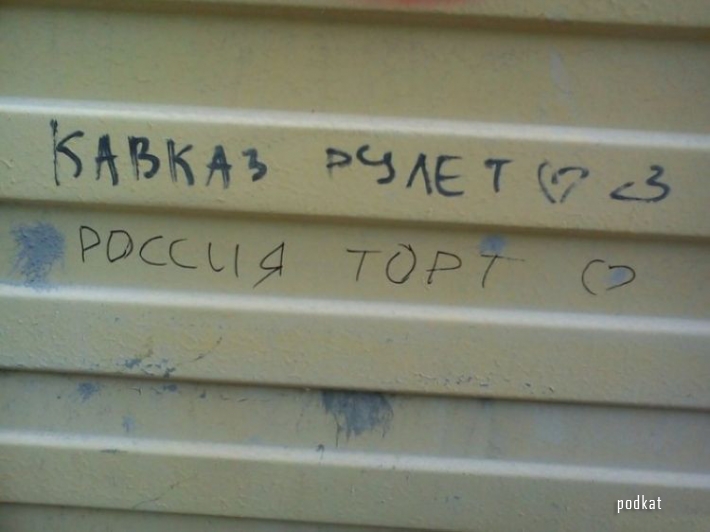 КАВКАЗ РУЛЕТ ♡ <3
РОССИЯ ТОРТ ♡
podkat